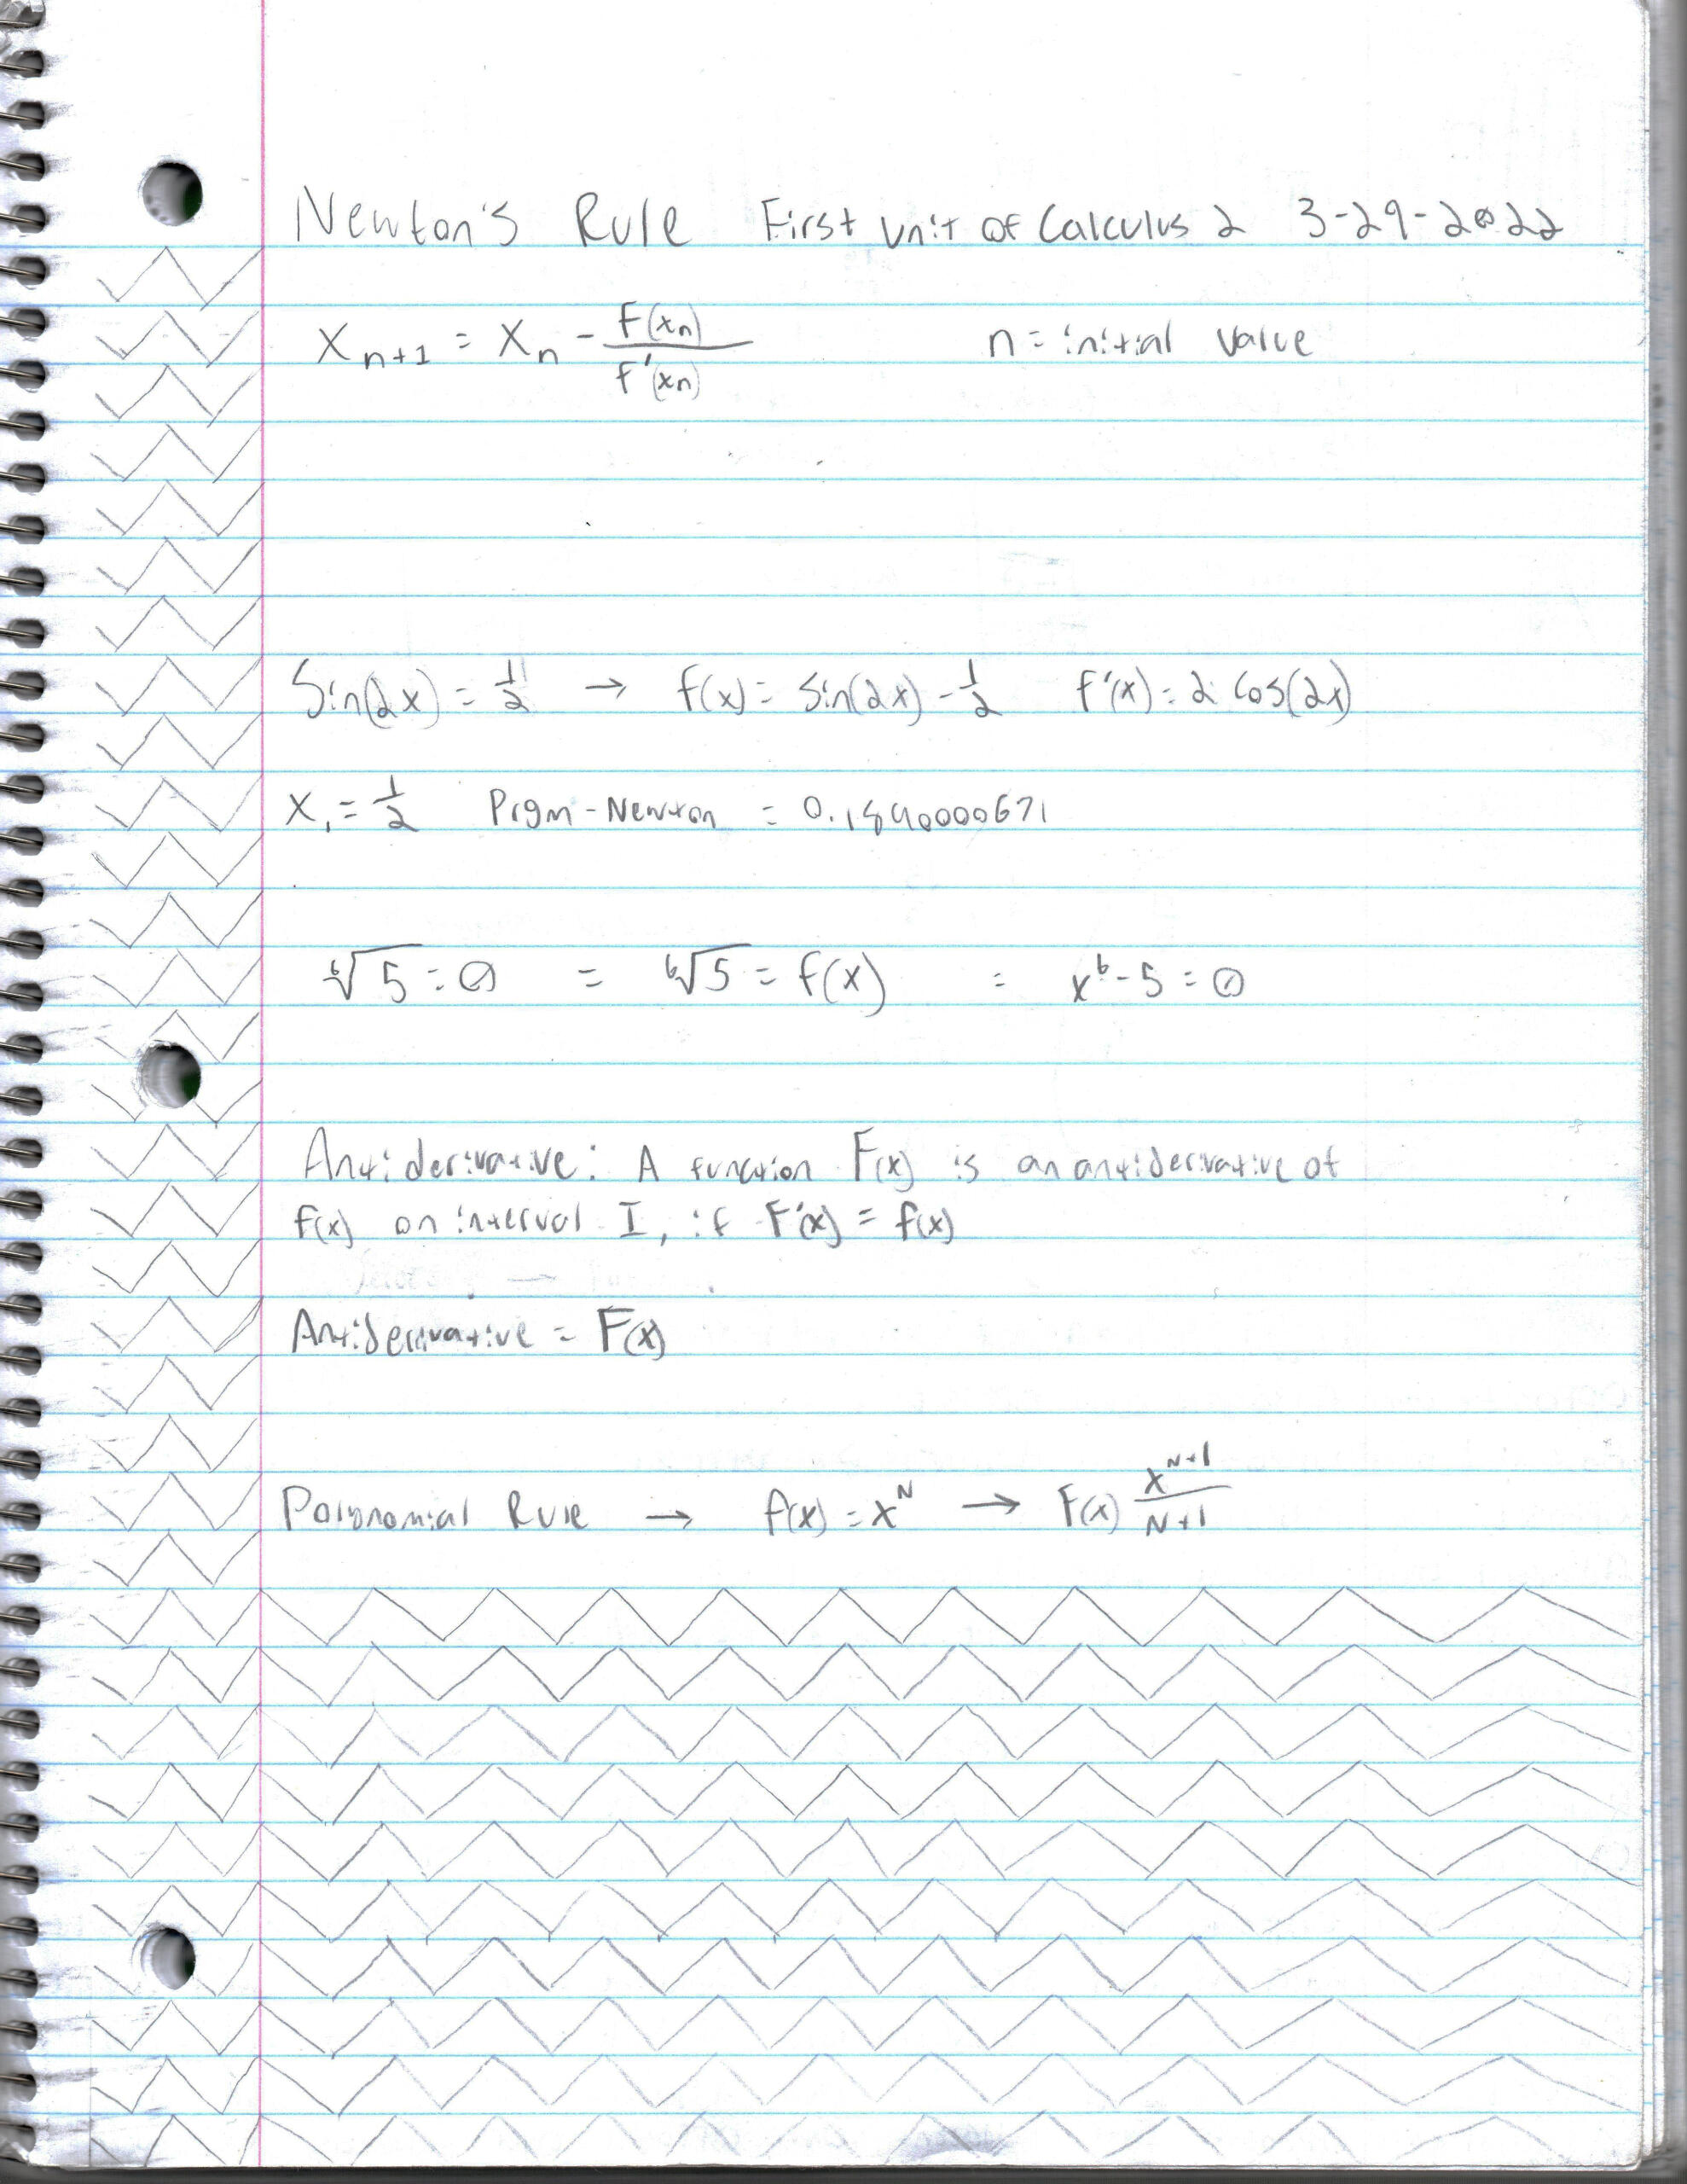 Newton's Rule First Unit of Calculus 2 3-29-2022
x_{n+1} = x_n - f(x_n)/f'(x_n) n = initial value
Sin(2x) = 1/2 → f(x) = Sin(2x) - 1/2 f'(x) = 2 cos(2x)
x_1 = 1/2 Prgm-Newton =
⁶√5 = 0 = ⁶√5 = f(x) = x⁶ - 5 = 0
Antiderivative: A function F(x) is an antiderivative of
f(x) on interval I, if F'(x) = f(x)
Antiderivative = F(x)
Polynomial Rule → f(x) = x^N → F(x) x^{N+1}/N+1